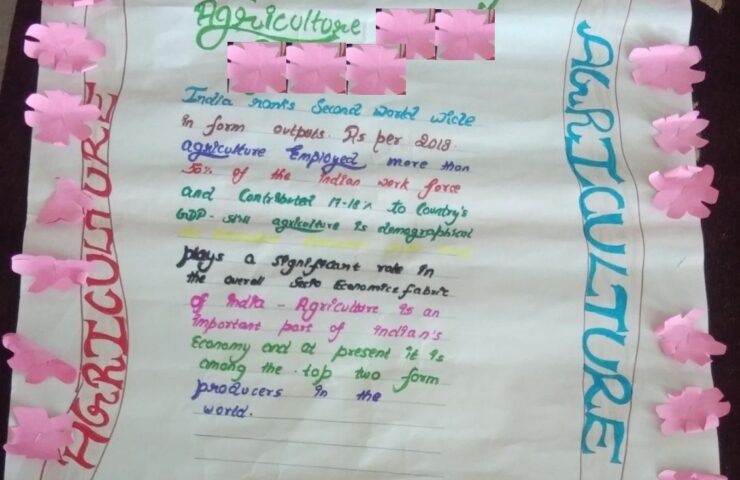 Agriculture
India ranks Second World wide
in form outputs. As per 2018.
agriculture Employed more than
50% of the Indian work force
and Contributed 17-18% to Country's
GDP - still agriculture is demographical
plays a significant role in
the overall Socio Economics fabric
of India - Agriculture is an
important part of indian's
Economy and at present it is
among the top two form
producers in the
world.
AGRICULTURE
AGRICULTURE